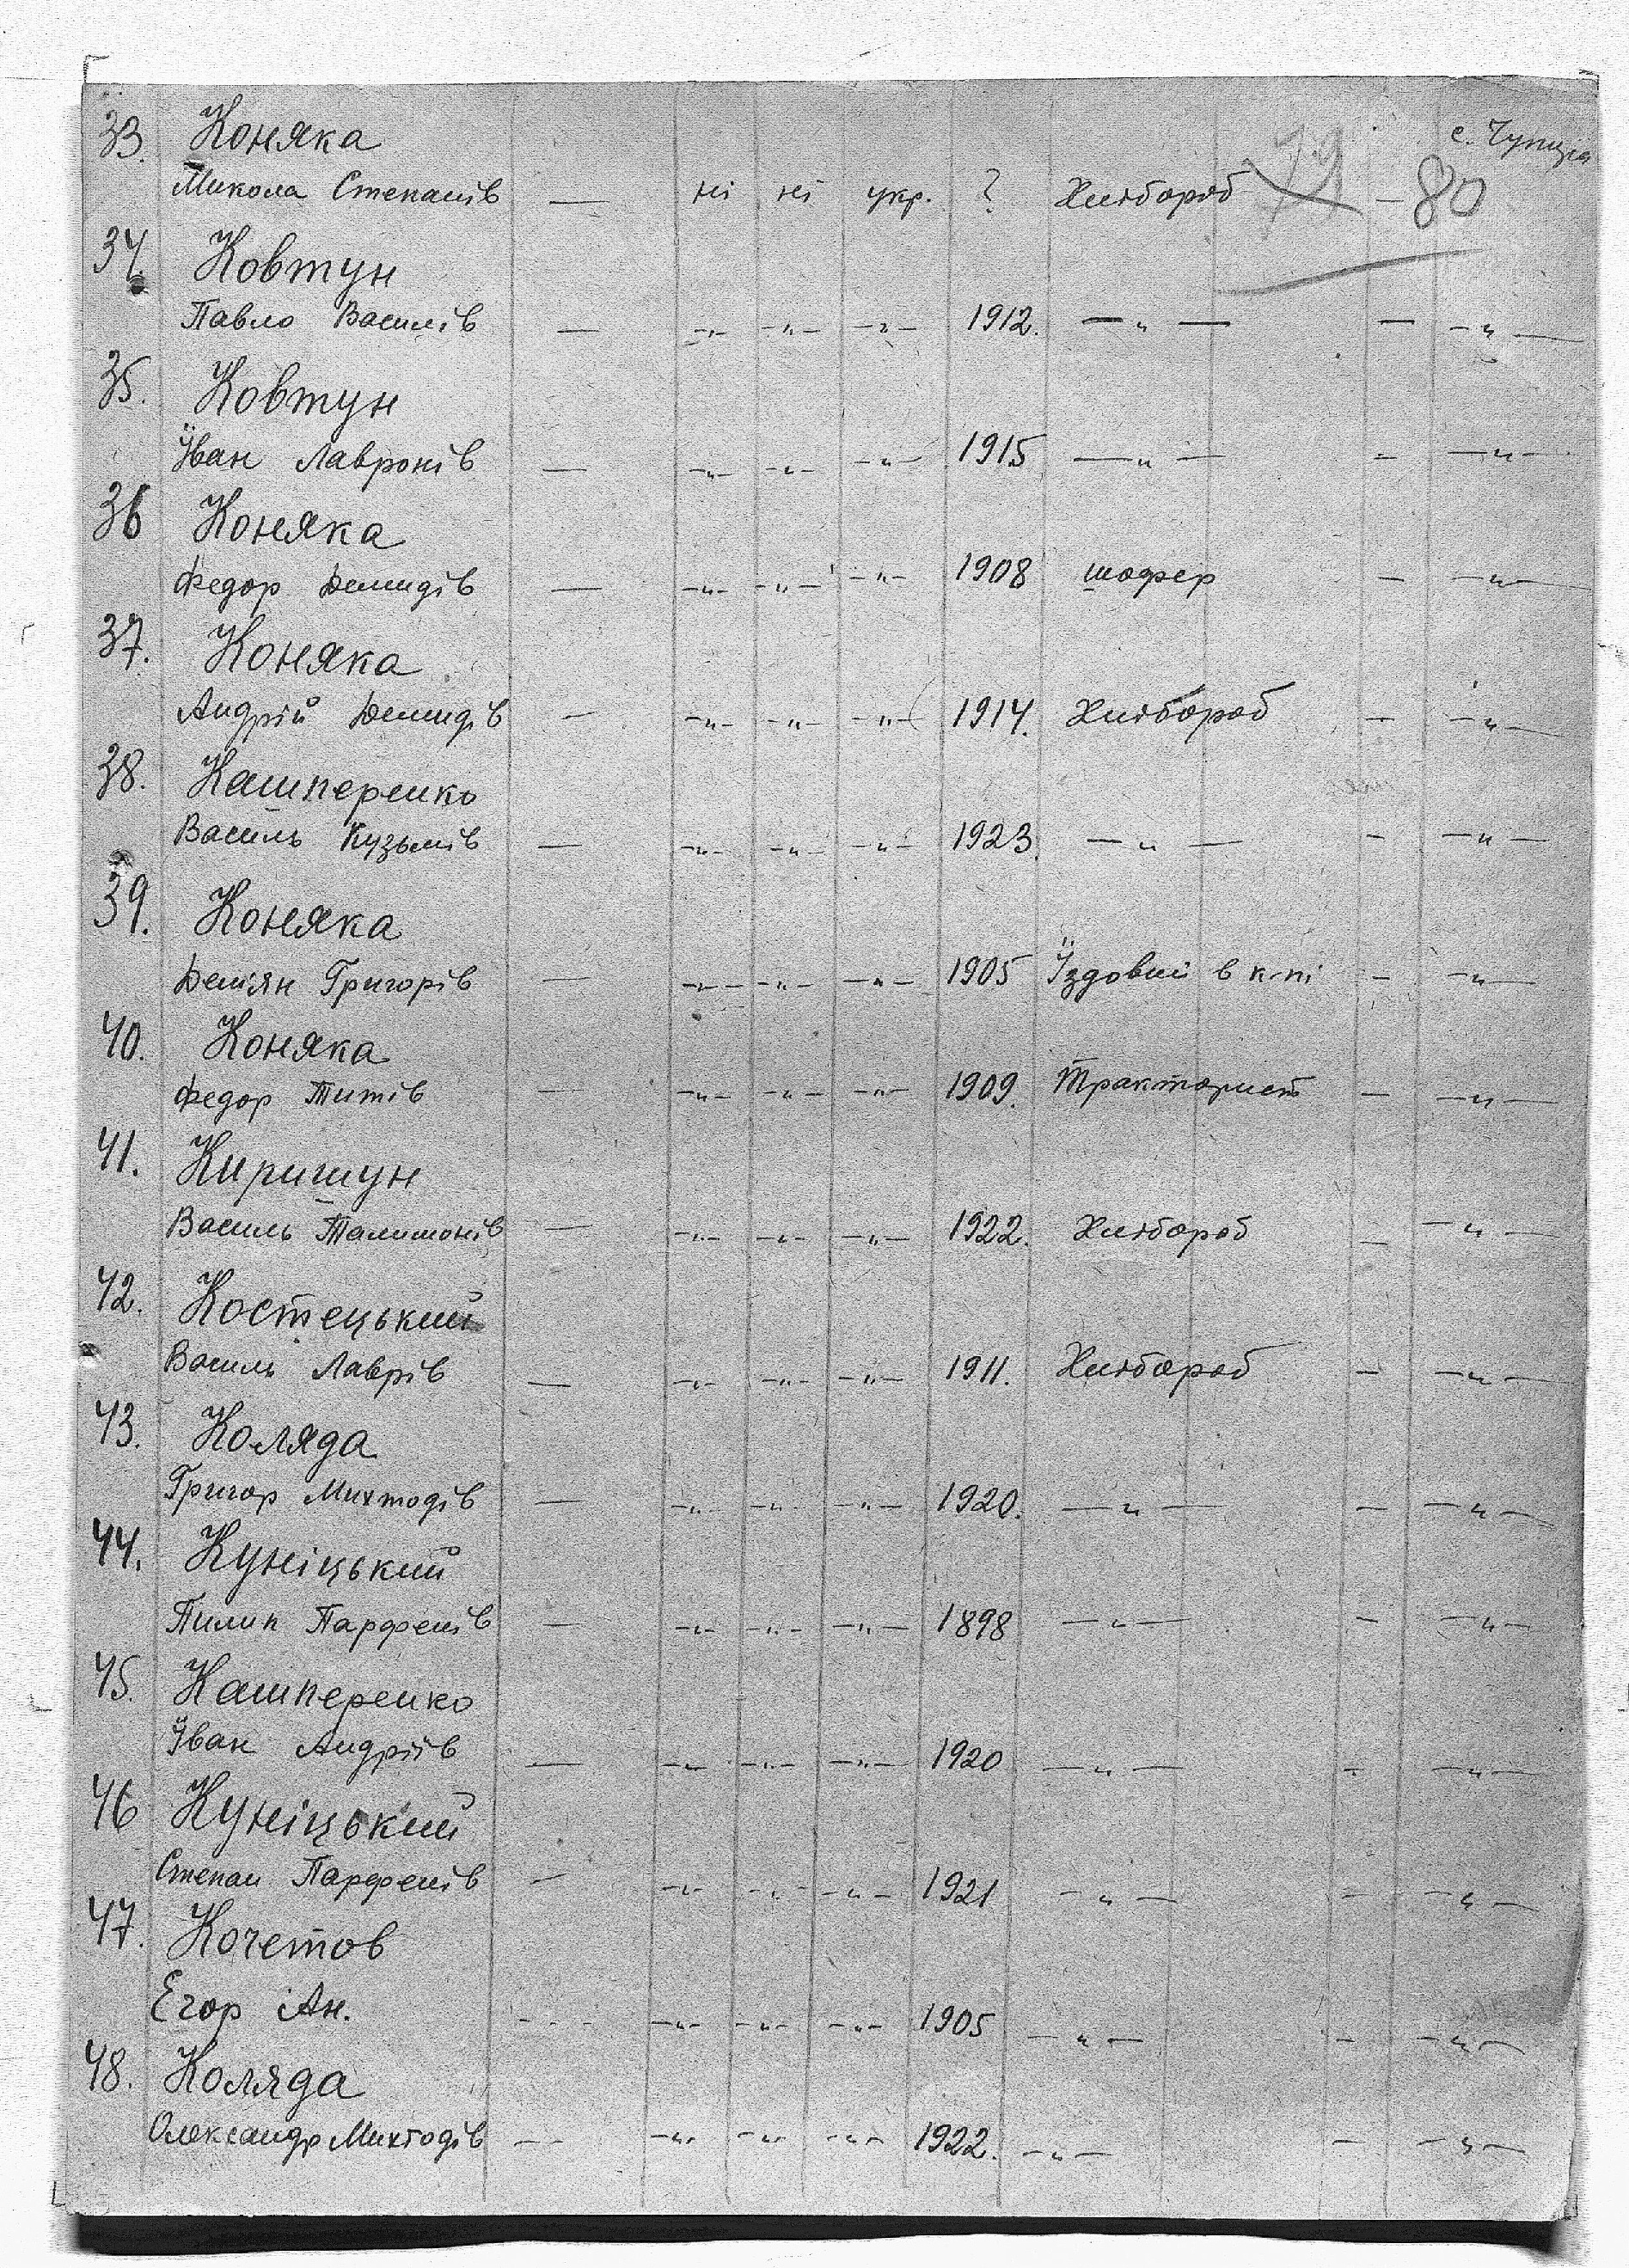 33. Коняка с. Чупира
Микола Степанів — ні ні укр. ? Хлібороб 79 — 80
34. Ковтун
Павло Василів — —„— —„— —„— 1912. —„— — —„—
35. Ковтун
Іван Лавронів — —„— —„— —„— 1915 —„— - —„—
36 Коняка
Федор Демидів — —„— —„— —„— 1908 шофер - —„—
37. Коняка
Андрій Демидів — —„— —„— —„— 1914. Хлібороб — —„—
38. Кашперенко
Василь Кузьмів — —„— —„— —„— 1923. —„— - —„—
39. Коняка
Демян Григорів — —„— —„— —„— 1905 Їздовий в к-пі - —„—
40. Коняка
Федор Титів — —„— —„— —„— 1909. Тракторист — —„—
41. Киришун
Василь Талимонів — —„— —„— —„— 1922. Хлібороб — —„—
42. Костецький
Василь Лаврів — —„— —„— —„— 1911. Хлібороб - —„—
43. Коляда
Григор Михтодів — —„— —„— —„— 1920. —„— — —„—
44. Куніцький
Пилип Парфенів — —„— —„— —„— 1898 —„— - —„—
45. Кашперенко
Іван Андріїв — —„— —„— —„— 1920 —„— - —„—
46 Куніцький
Степан Парфенів — —„— —„— —„— 1921 —„— - —„—
47. Кочетов
Егор Ан. --- —„— —„— —„— 1905 —„— - —„—
48. Коляда
Олександр Михтодів — —„— —„— —„— 1922. —„— — —„—